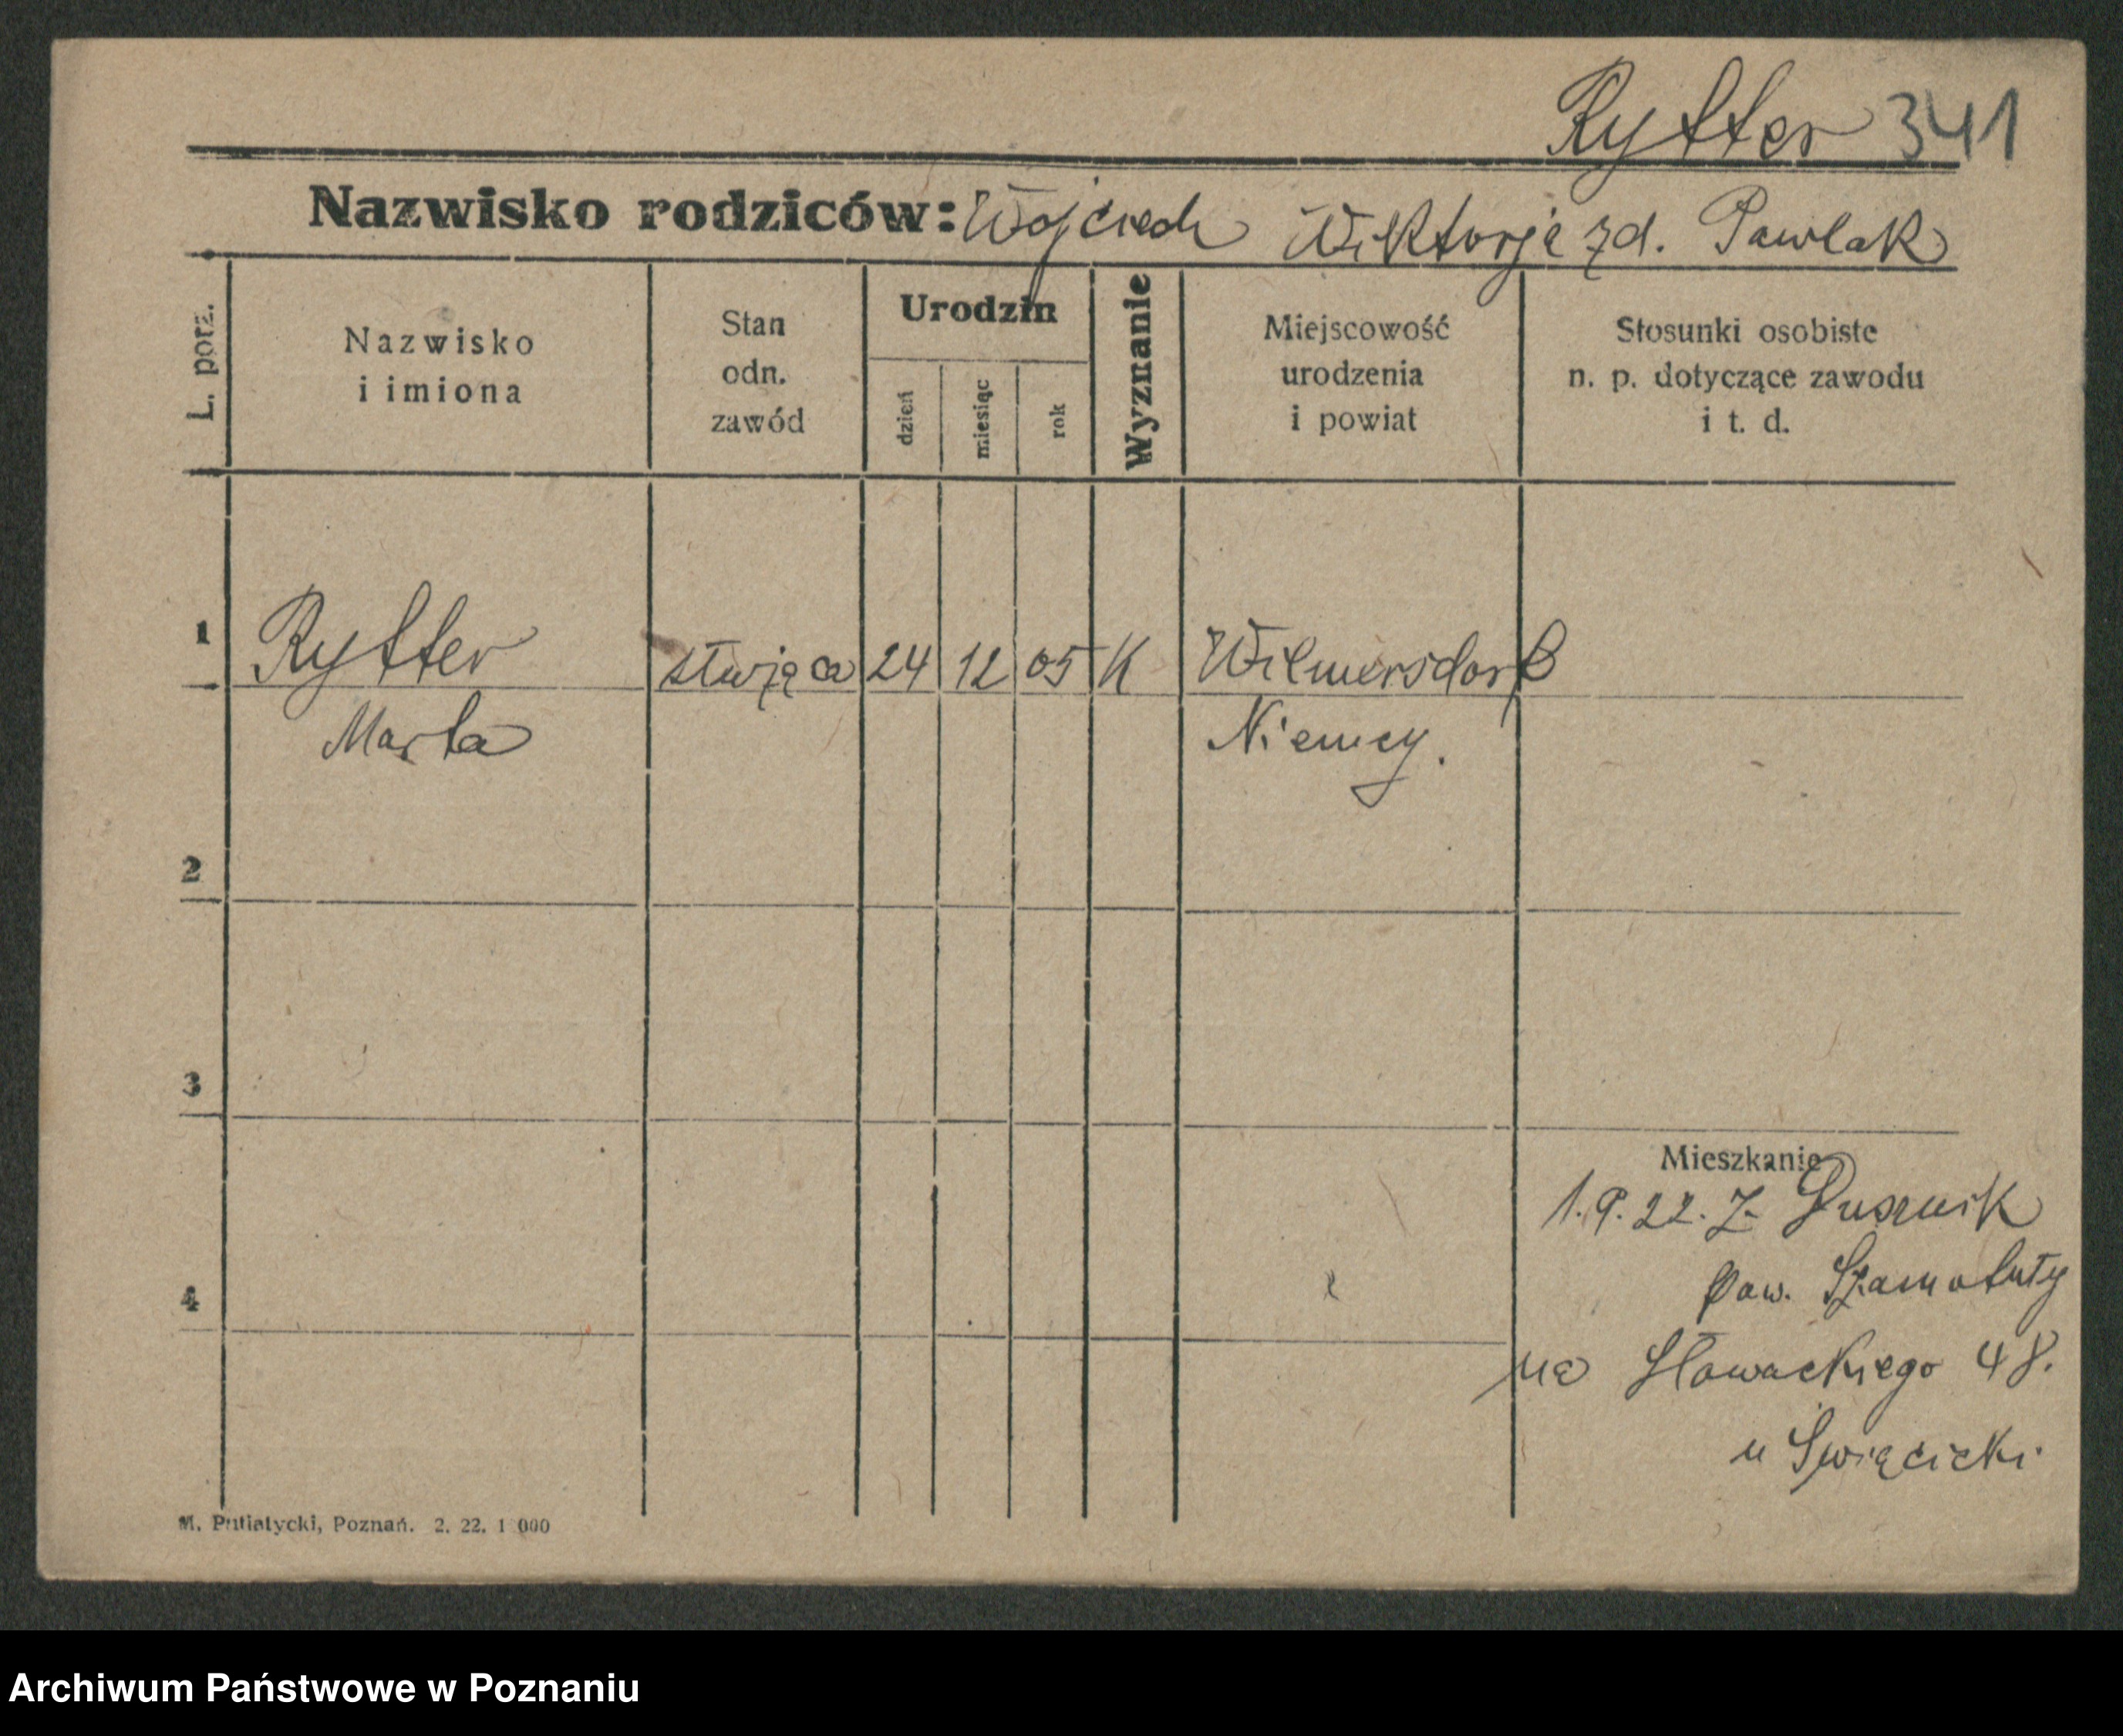 Rytter 341
Nazwisko rodziców: Wojciech Wiktorja zd. Pawlak
L. porz.
Nazwisko
i imiona
Stan
odn.
zawód
Urodzin
dzień
miesiąc
rok
Wyznanie
Miejscowość
urodzenia
i powiat
Stosunki osobiste
n. p. dotyczące zawodu
i t. d.
1 Rytter służąca 24 12 05 K Wilmersdorf
Marta Niemcy.
2
3
Mieszkanie
1.9.22. z Dusznik
pow. Szamotuły
4
na Słowackiego 48.
u Święcicki.
M. Putiatycki, Poznań. 2. 22. 1 000
Archiwum Państwowe w Poznaniu